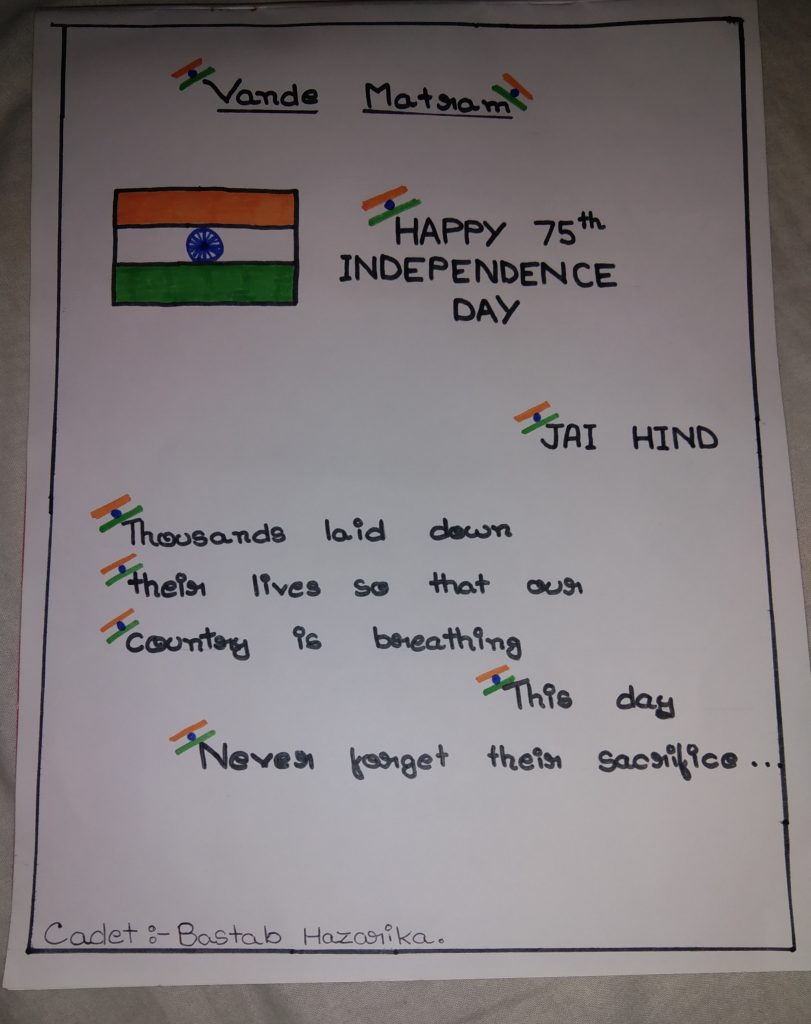 Vande Matram
HAPPY 75th
INDEPENDENCE
DAY
JAI HIND
Thousands laid down
their lives so that our
country is breathing
This day
Never forget their sacrifice...
Cadet :- Bastab Hazarika.